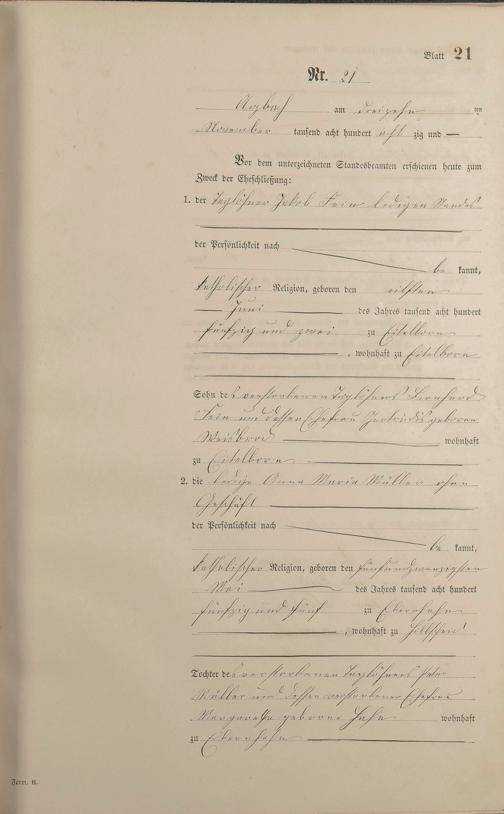 Blatt 21
Nr. 21
Arzbach am dreizehn ten
November tausend acht hundert acht zig und —
Vor dem unterzeichneten Standesbeamten erschienen heute zum
Zweck der Eheschließung:
1. der Taglöhner Jakob Fein ledigen Standes
der Persönlichkeit nach
be kannt,
katholischer Religion, geboren den eilften
Juni des Jahres tausend acht hundert
fünfzig und zwei zu Eitelborn
, wohnhaft zu Eitelborn
Sohn des verstorbenen Taglöhners Bernhard
Fein und dessen Ehefrau geborene
Weisbrod wohnhaft
zu Eitelborn
2. die ledige Anna Maria Müller ohne
Geschäft
der Persönlichkeit nach
be kannt,
katholischer Religion, geboren den fünfundzwanzigsten
Mai des Jahres tausend acht hundert
fünfzig und fünf zu Ebernhahn
, wohnhaft zu Hillscheid
Tochter des verstorbenen Taglöhners Peter
Müller und dessen verstorbener Ehefrau
Margaretha geborene wohnhaft
zu Ebernhahn
Form. B.